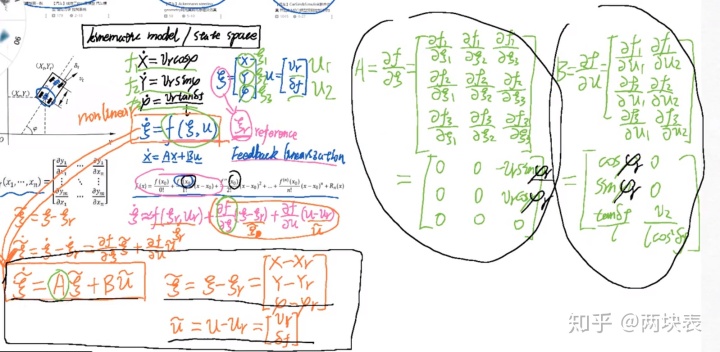 kinematic model / state space
f₁ Ẋ = Vr cosφ
f₂ Ẏ = Vr sinφ
φ̇ = Vr tanδf
ξ = [X Y φ] ξ₁ ξ₂ ξ₃ u = [Vr δf] u₁ u₂
nonlinear
ξ̇ = f(ξ, u)
ξr reference
ẋ = Ax + Bu
Feedback linearization
ξ̇ = f(ξr, ur) + ∂f/∂ξ (ξ - ξr) + ∂f/∂u (u - ur)
ξ̃ = ξ - ξr
ξ̃̇ = ξ̇ - ξ̇r = ∂f/∂ξ ξ̃ + ∂f/∂u ũ
ξ̃̇ = Aξ̃ + Bũ
ξ̃ = ξ - ξr = [X - Xr Y - Yr φ - φr]
ũ = u - ur = [Vr δf]
A = ∂f/∂ξ = [∂f₁/∂ξ₁ ∂f₁/∂ξ₂ ∂f₁/∂ξ₃
∂f₂/∂ξ₁ ∂f₂/∂ξ₂ ∂f₂/∂ξ₃
∂f₃/∂ξ₁ ∂f₃/∂ξ₂ ∂f₃/∂ξ₃]
= [0 0 -Vr sinφr
0 0 Vr cosφr
0 0 0]
B = ∂f/∂u = [∂f₁/∂u₁ ∂f₁/∂u₂
∂f₂/∂u₁ ∂f₂/∂u₂
∂f₃/∂u₁ ∂f₃/∂u₂]
= [cosφr 0
sinφr 0
tanδf/l Vr/(l cos²δf)]
知乎 @两块表